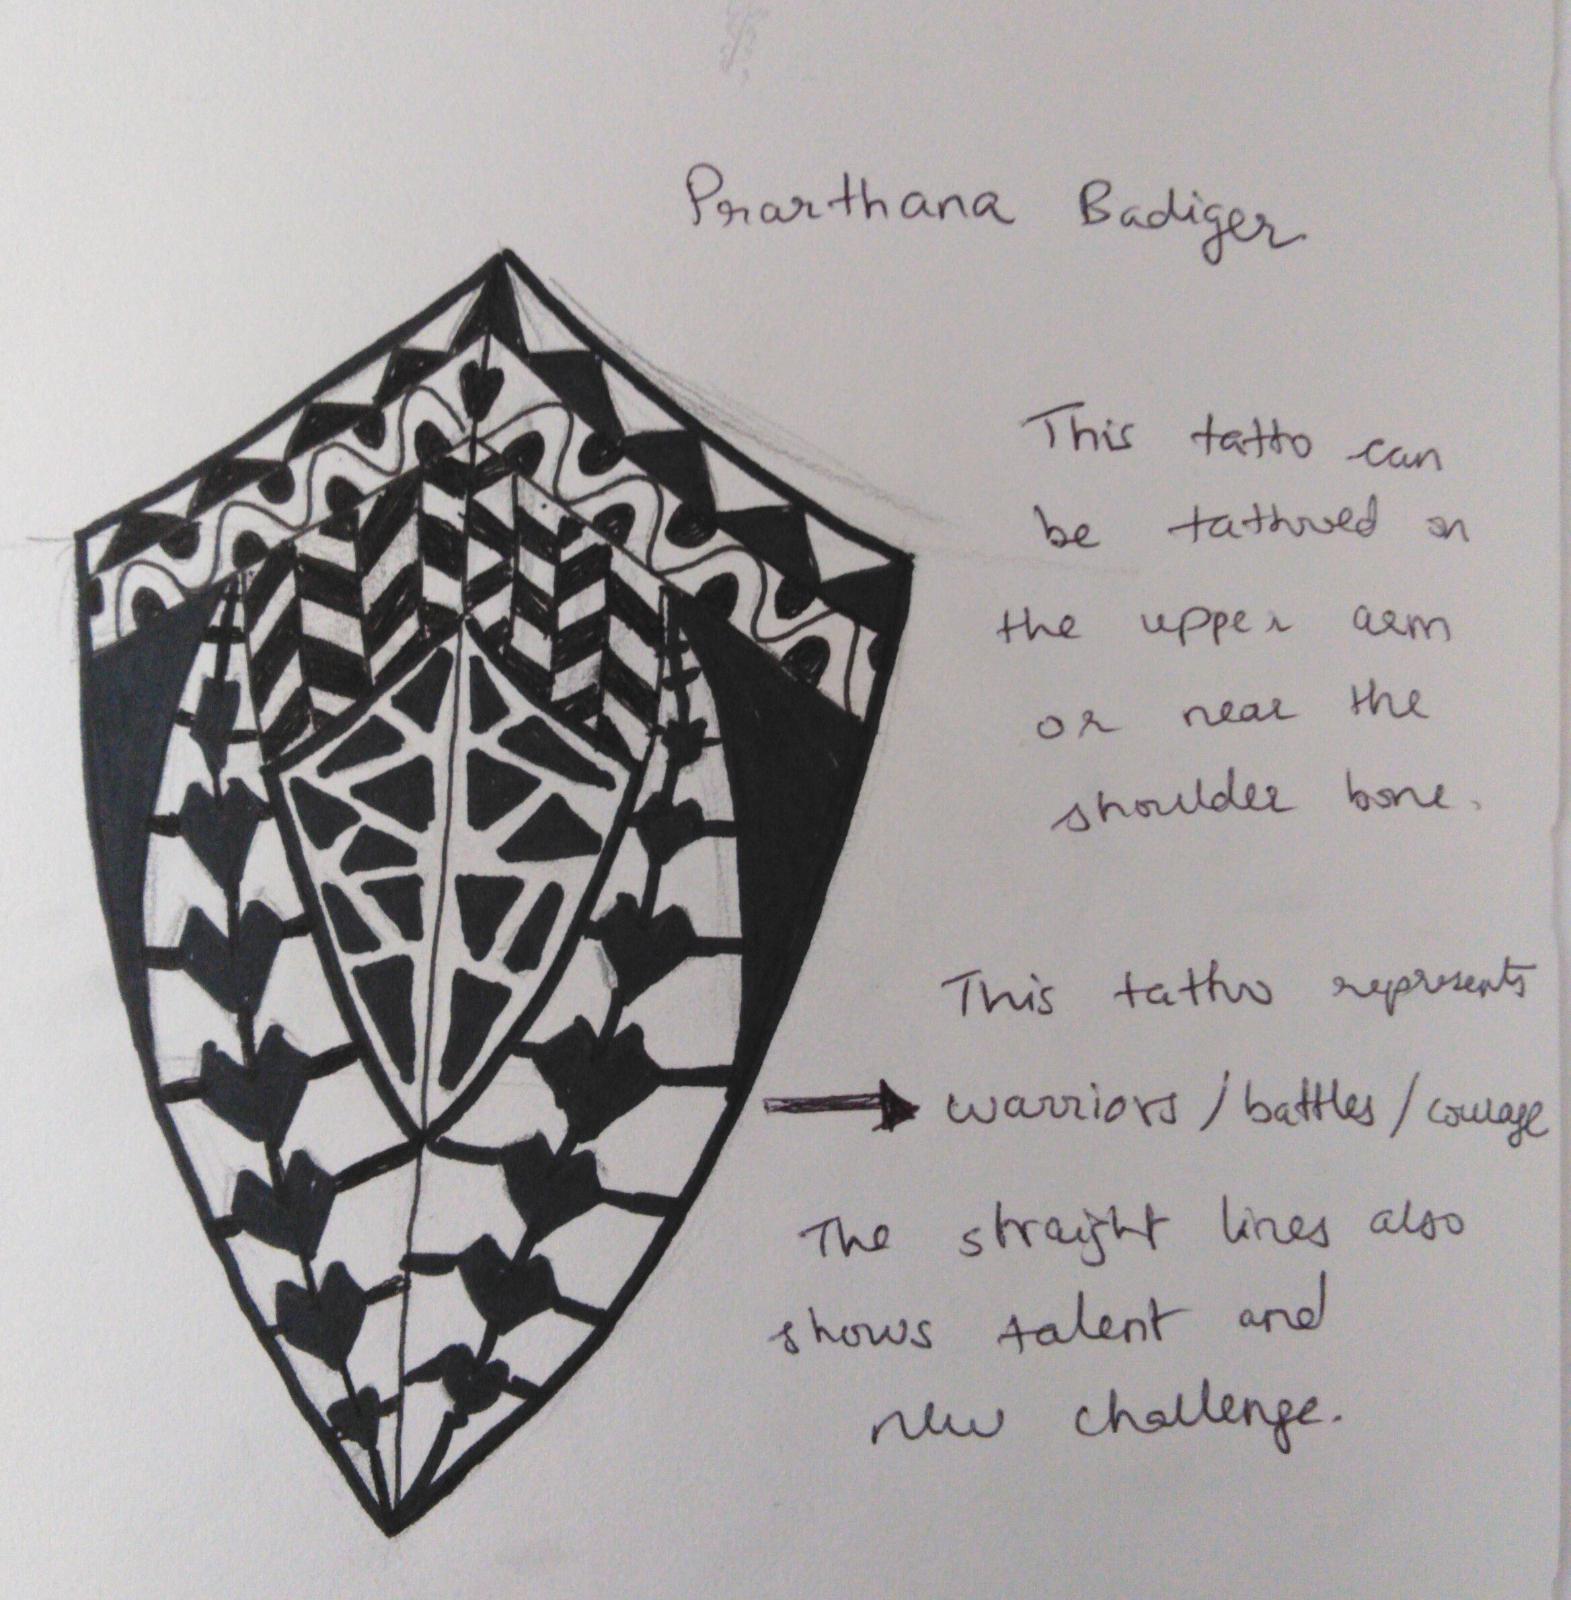 Prarthana Badiger
This tatto can
be tattooed on
the upper arm
or near the
shoulder bone.
This tattoo represents
warriors / battles / courage
The straight lines also
shows talent and
new challenge.